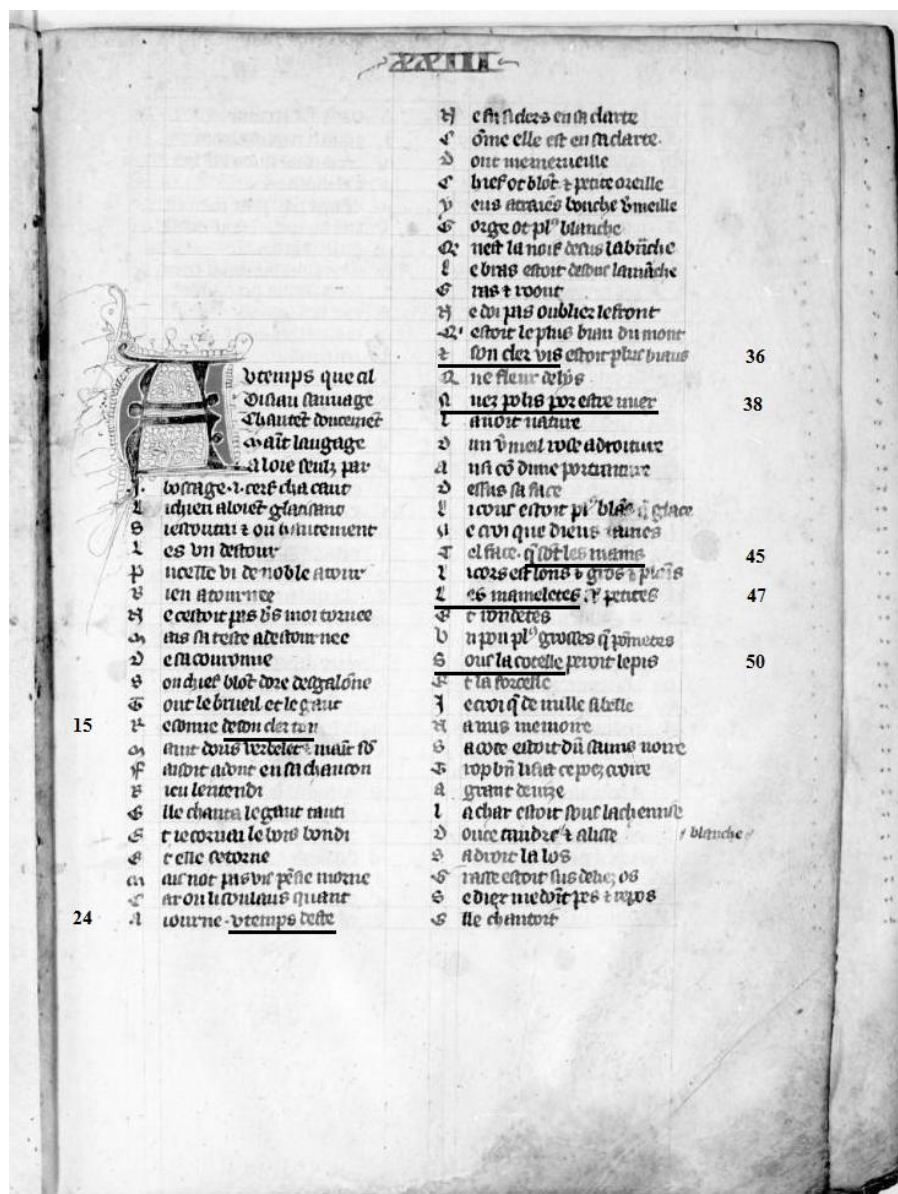 XXIIII
Au temps que al
Oisiau sauuage
Chantet doucemēt
En maīt langage
Aloie seulz par
J. boscage .i. cerf chacant
L i chien aloiēt glatisant
S i escoutai z oi hautement
L es vn destour
P ucelle vi de noble atour
B ien atournee
N e cestoit pas v̄s moi tornee
M ais sa teste a destournee
D e sa couronne
S on chief blōt dore desgalōne
T out le brueil et le gaut
15 R esonne de son cler ton
M aint dous verbelet z maīt sō
F aisoit adont en sa chancon
B ien lentendi
E lle chanta le gaut tanti
E t ie cornai le bois bondi
E t elle se torne
M ais not pas vis pēsif morne
C ar on li soulaus quant
24 A iourne . v temps deste
N e
C ōme elle est en sa clarte.
D ont me merueille
C hief ot blōt z petite oreille
Y eus atraiēs bouche v̄meille
G orge ot pl⁹ blanche
Q; nest la noif desus la brāche
L e bras estoit desouz la māche
G ras z roont
N e doi pas oublier le front
Q' estoit le plus biau du mont
z son cler vis estoit plus biaus 36
Q ue fleur de lys
A nez polis por estre mier 38
L auoit nature
D un v̄meil rose a droiture
A nsi cō dune portraiture
D essus sa face
L i cour estoit pl⁹ blās q̄ glace
N e croi que dieus iames
T el face . q̄ sōt les mains 45
L i cors est lons z gros z plaīs
L es mameletes . z petites 47
E t rondetes
V n pou pl⁹ grosses q̄ pōmetes
S ouz la cotelle peroit le pis 50
E t la forcelle
J e croi q̄ de nulle si belle
N a nus memoire
S a cote estoit dū saunis noire
T rop bn̄ li sist ce poez croire
A grant deuize
L a char estoit souz la chemise
D ouce tandre z alise // blanche //
S a droit la los
G rasse estoit sus de lez os
S e diex me doīt pes z repos
E lle chantoit